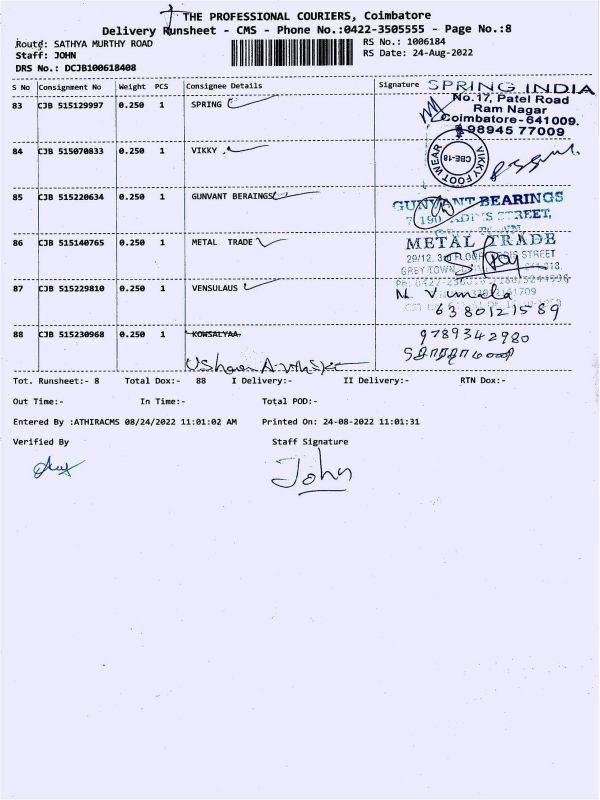 THE PROFESSIONAL COURIERS, Coimbatore
Delivery Runsheet - CMS - Phone No.:0422-3505555 - Page No.:8
Route: SATHYA MURTHY ROAD
RS No.: 1006184
Staff: JOHN
RS Date: 24-Aug-2022
DRS No.: DCJB100618408
S No Consignment No Weight PCS Consignee Details Signature
SPRING INDIA
83 CJB 515129997 0.250 1 SPRING
No.17, Patel Road
Ram Nagar
Coimbatore-641009.
98945 77009
84 CJB 515070833 0.250 1 VIKKY
VIKKY FOOT WEAR
CBE-18
85 CJB 515220634 0.250 1 GUNVANT BERAINGS
GUNVANT BEARINGS
STREET,
86 CJB 515140765 0.250 1 METAL TRADE
METAL TRADE
29/12, FLOOR STREET
GREY TOWN,
87 CJB 515229810 0.250 1 VENSULAUS
N. Vimala
6380121589
88 CJB 515230968 0.250 1 KOWSALYAA.
9789342980
Tot. Runsheet:- 8 Total Dox:- 88 I Delivery:- II Delivery:- RTN Dox:-
Out Time:- In Time:- Total POD:-
Entered By :ATHIRACMS 08/24/2022 11:01:02 AM Printed On: 24-08-2022 11:01:31
Verified By Staff Signature
John